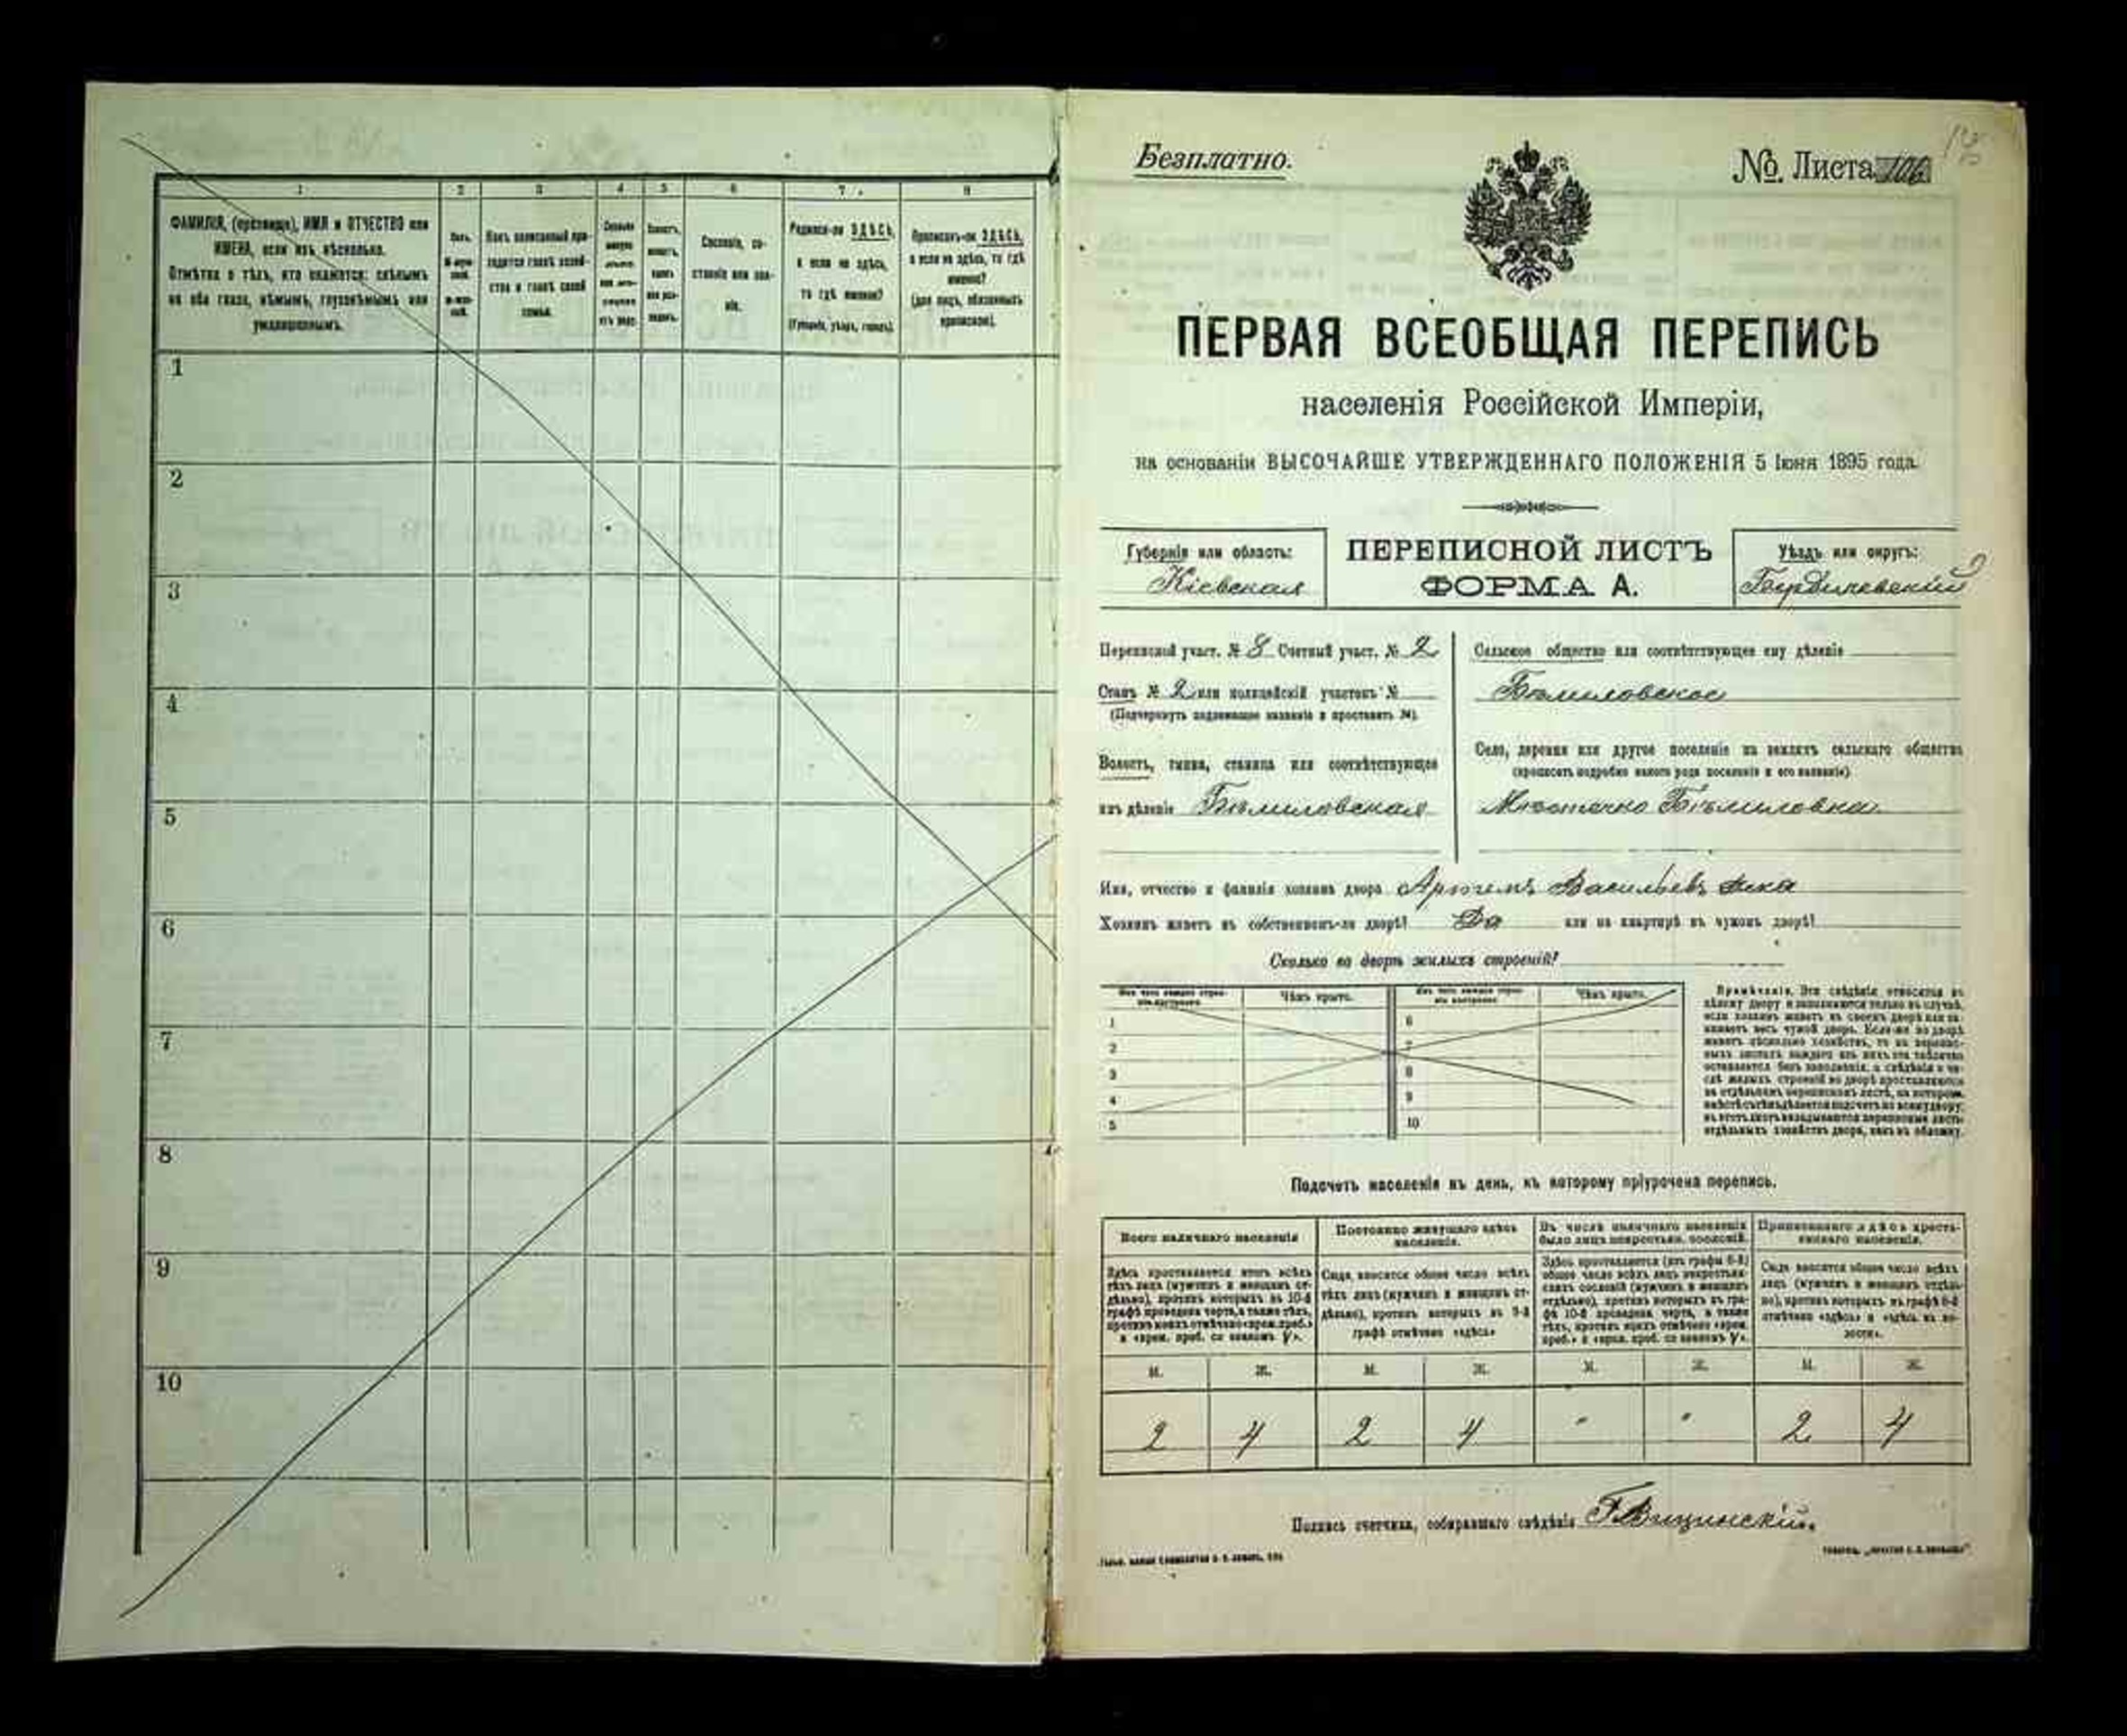 1 2 3 4 5 6 7 8
ФАМИЛІЯ, (прозвище), ИМЯ и ОТЧЕСТВО или
ИМЕНА, если ихъ нѣсколько.
Отмѣтка о тѣхъ, кто окажется: слѣпымъ
на оба глаза, нѣмымъ, глухонѣмымъ или
умалишеннымъ.
Сословіе, со-
стояніе или зва-
ніе.
Родился-ли ЗДѢСЬ,
а если не здѣсь,
то гдѣ именно?
(Губернія, уѣздъ, городъ).
Приписанъ-ли ЗДѢСЬ,
а если не здѣсь, то гдѣ
именно?
(для лицъ, обязанныхъ
припискою).
1
2
3
4
5
6
7
8
9
10
Безплатно.
№ Листа 106
ПЕРВАЯ ВСЕОБЩАЯ ПЕРЕПИСЬ
населенія Россійской Имперіи,
на основаніи ВЫСОЧАЙШЕ УТВЕРЖДЕННАГО ПОЛОЖЕНІЯ 5 Іюня 1895 года.
Губернія или область:
Кіевская
ПЕРЕПИСНОЙ ЛИСТЪ
ФОРМА А.
Уѣздъ или округъ:
Бердичевскій
Переписной участ. № 8 Счетный участ. № 2
Станъ № 2 или полицейскій участокъ №
(Подчеркнуть надлежащее названіе и проставить №).
Волость, гмина, станица или соотвѣтствующее
имъ дѣленіе Бѣлиловская
Сельское общество или соотвѣтствующее ему дѣленіе
Бѣлиловское
Село, деревня или другое поселеніе на земляхъ сельскаго общества
(прописать подробно какого рода поселеніе и его названіе)
Мѣстечко Бѣлиловка
Имя, отчество и фамилія хозяина двора Артемъ Васильевъ
Хозяинъ живетъ въ собственномъ-ли дворѣ? Да или на квартирѣ въ чужомъ дворѣ?
Сколько во дворѣ жилыхъ строеній?
Чѣмъ крыто. Чѣмъ крыто.
1 6
2 7
3 8
4 9
5 10
Примѣчаніе. Эти свѣдѣнія относятся къ
цѣлому двору и заполняются только въ случаѣ,
если хозяинъ живетъ въ своемъ дворѣ или за-
нимаетъ весь чужой дворъ. Если-же во дворѣ
живетъ нѣсколько хозяйствъ, то на перепис-
ныхъ листахъ каждаго изъ нихъ эта табличка
оставляется безъ заполненія, а свѣдѣнія о чи-
слѣ жилыхъ строеній во дворѣ проставляются
на отдѣльномъ переписномъ листѣ, на которомъ
Подсчетъ населенія въ день, къ которому пріурочена перепись.
Всего наличнаго населенія
Постоянно живущаго здѣсь
населенія.
Въ числѣ наличнаго населенія
было лицъ некрестьян. сословій.
Приписаннаго здѣсь кресть-
янскаго населенія.
Здѣсь проставляется итогъ всѣхъ
тѣхъ лицъ (мужчинъ и женщинъ от-
дѣльно), противъ которыхъ въ 10-й
графѣ проведена черта, а также тѣхъ,
противъ коихъ отмѣчено «врем. преб.»
Сюда вносится общее число всѣхъ
тѣхъ лицъ (мужчинъ и женщинъ от-
дѣльно), противъ которыхъ въ 9-й
графѣ отмѣчено «здѣсь»
Здѣсь проставляется (изъ графы 6-й)
общее число всѣхъ лицъ некрестьян-
скихъ сословій (мужчинъ и женщинъ
отдѣльно), противъ которыхъ въ гра-
фѣ 10-й проведена черта, а также
тѣхъ, противъ коихъ отмѣчено «врем.
Сюда вносится общее число всѣхъ
лицъ (мужчинъ и женщинъ отдѣль-
но), противъ которыхъ въ графѣ 8-й
отмѣчено «здѣсь» и «здѣсь въ во-
лости».
М. Ж. М. Ж. М. Ж. М. Ж.
2 4 2 4 " " 2 4
Подпись счетчика, собиравшаго свѣдѣнія